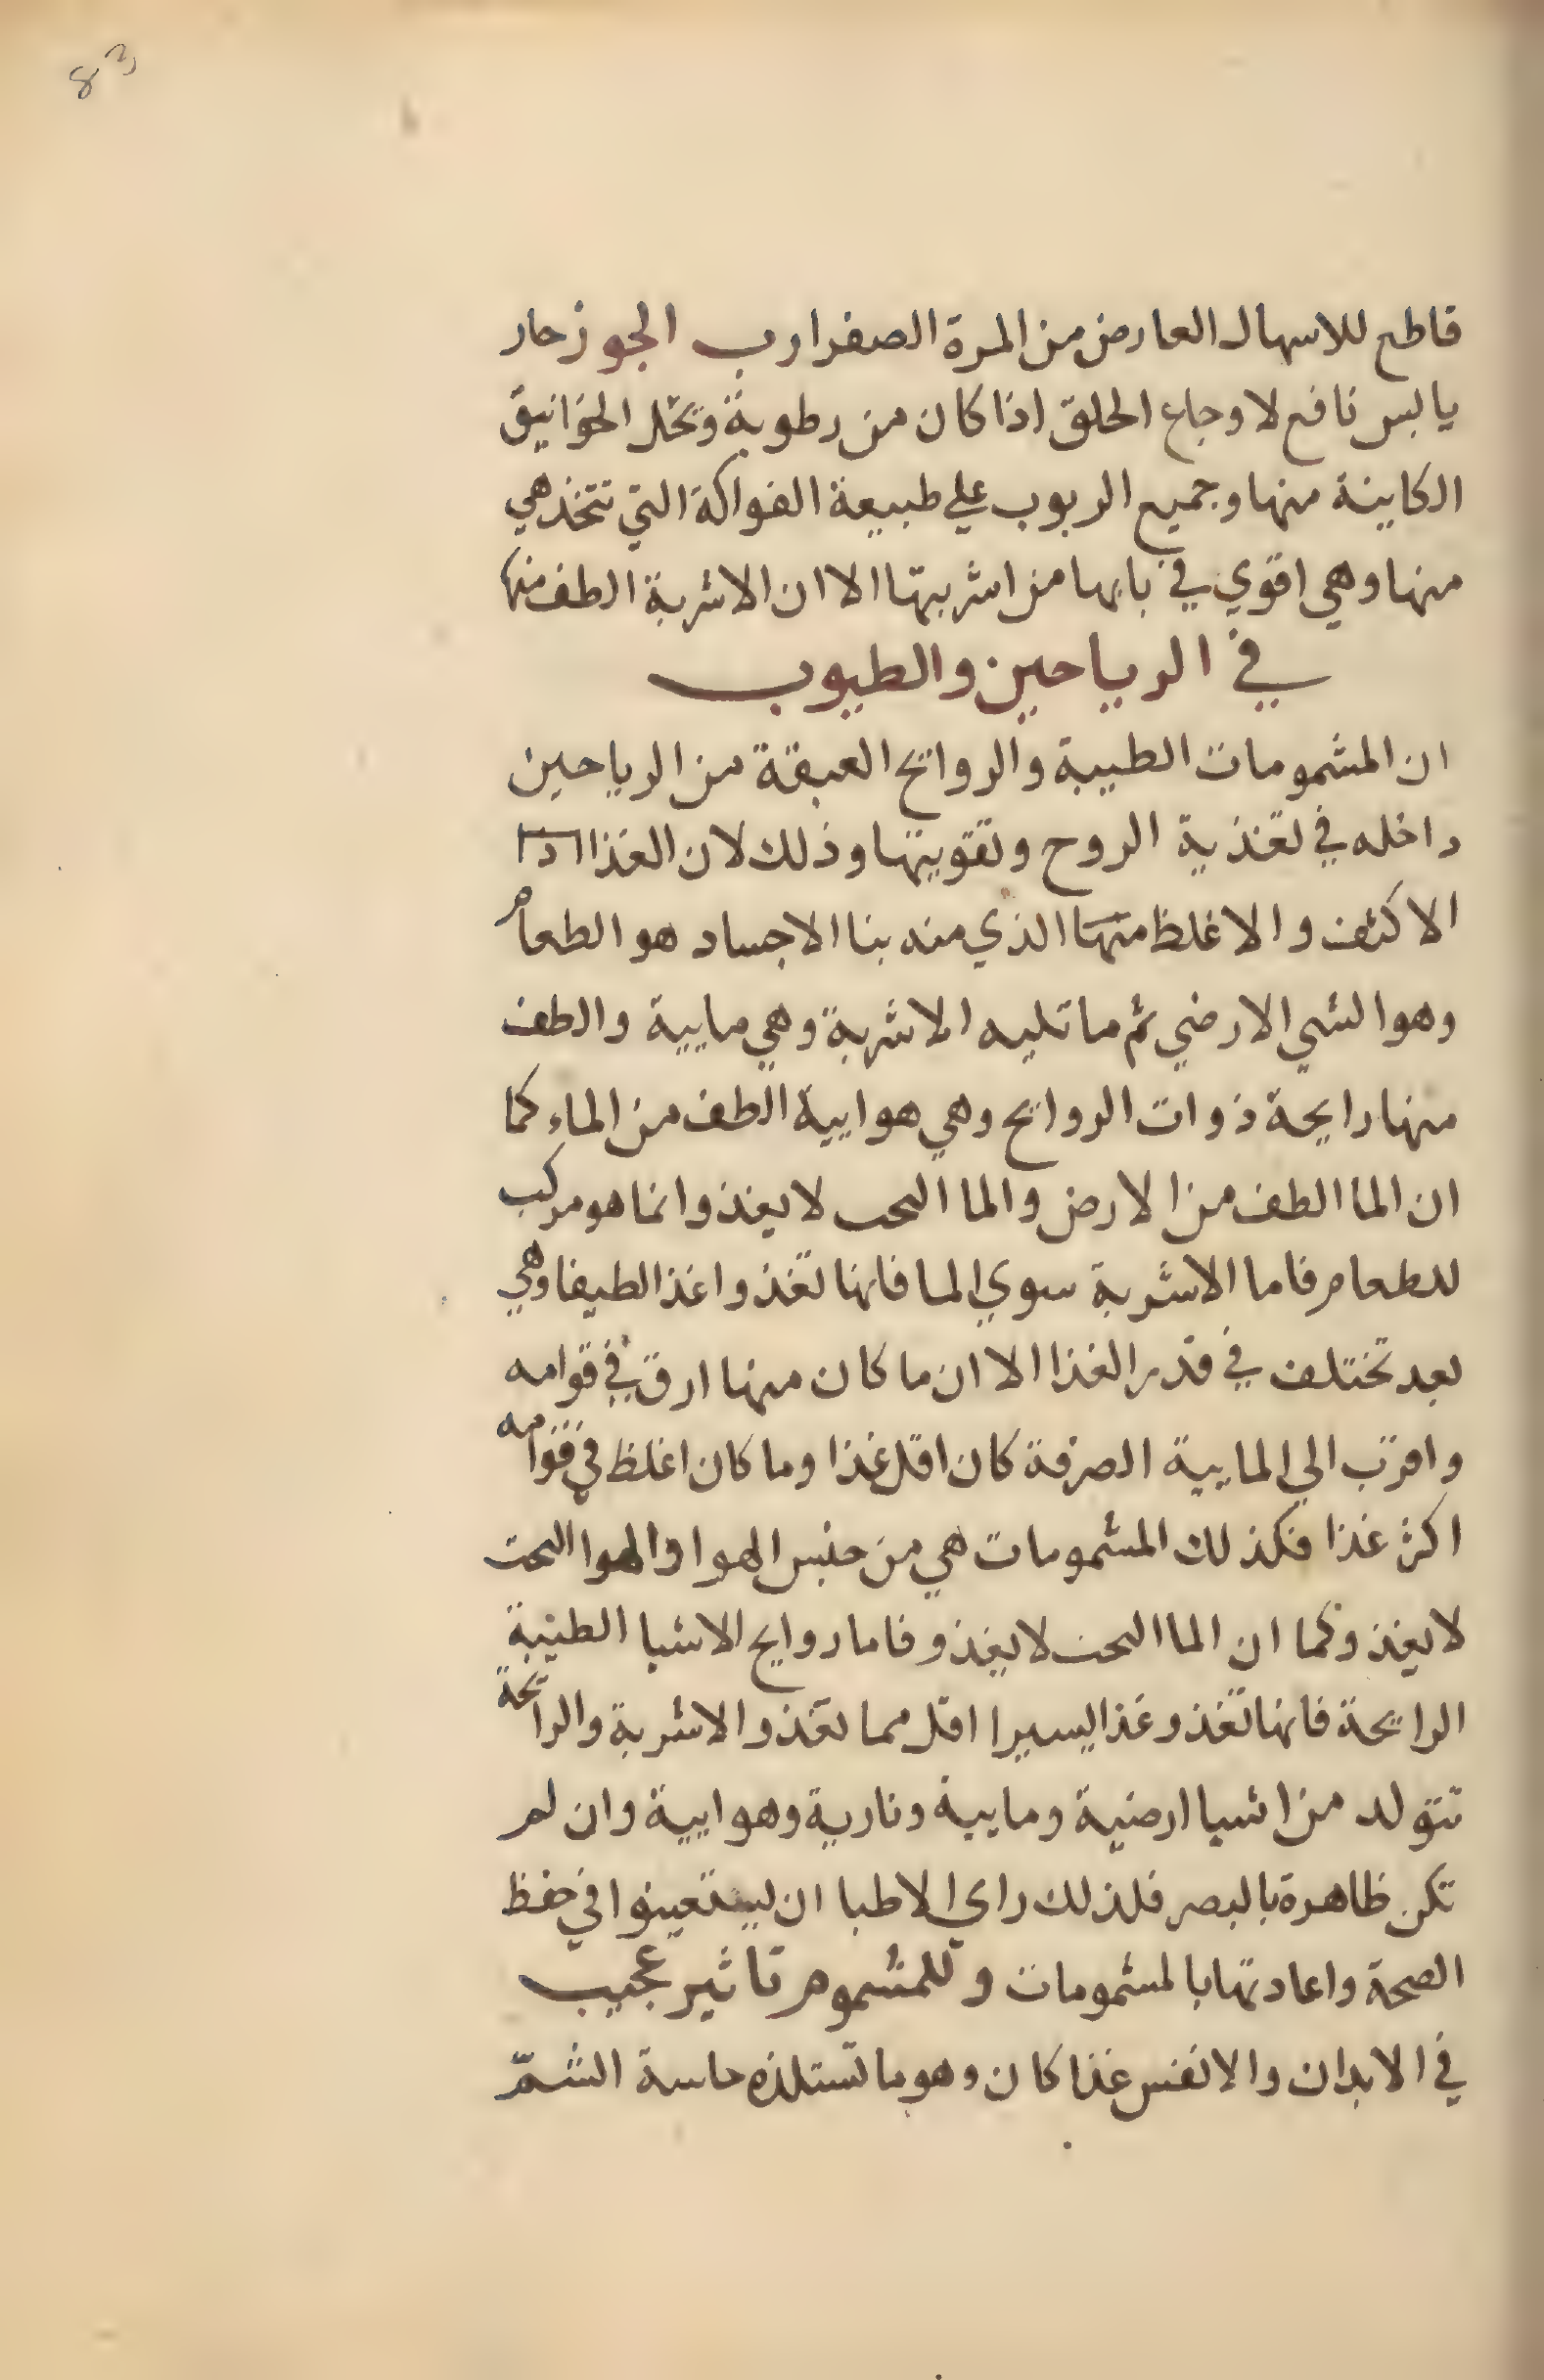 83
قاطع للاسهال العارض من المرة الصفرا رب الجوز حار
يابس نافع لاوجاع الحلق اذا كان من رطوبة وتحلل الخوانيق
الكاينة منها وجميع الربوب علي طبيعة الفواكة التي تتخذ هي
منها وهي اقوي في بابها من اشربيتها الا ان الاشربة الطف منها
في الرياحين والطيوب
ان المشمومات الطيبة والروايح العبقة من الرياحين
داخله في تغذية الروح وتقويتها وذلك لان الغذا
الاكثف والاغلظ منها الذي منه بنا الاجساد هو الطعام
وهو الشي الارضي ثم ما تليه الاشربة وهي مايية والطف
منها رايحة ذوات الروايح وهي هوايية الطف من الماء كما
ان الما الطف من الارض والما البحت لا يغذو انما هو مركب
للطعام فاما الاشربة سوي الما فانها تغذوا غذا لطيفا وهي
بعد تختلف في قدر الغذا الا ان ما كان منها ارق في قوامه
واقرب الي المايية الصرفة كان اقل غذا وما كان اغلظ في قوامه
اكثر غذا فكذلك المشمومات هي من جنس الهوا والهوا البحت
لا يغذو كما ان الما البحت لا يغذو فاما روايح الاشيا الطيبة
الرايحة فانها تغذو غذا يسيرا اقل مما تغذو الاشربة والرايحة
تتولد من اشيا ارضية ومايية ونارية وهوايية وان لم
تكن ظاهرة بالبصر فلذلك راي الاطبا ان يستعينوا في حفظ
الصحة واعادتها بالمشمومات وللمشموم تاثير عجيب
في الابدان والانفس غذا كان وهو ما تستلذه حاسة الشمّ